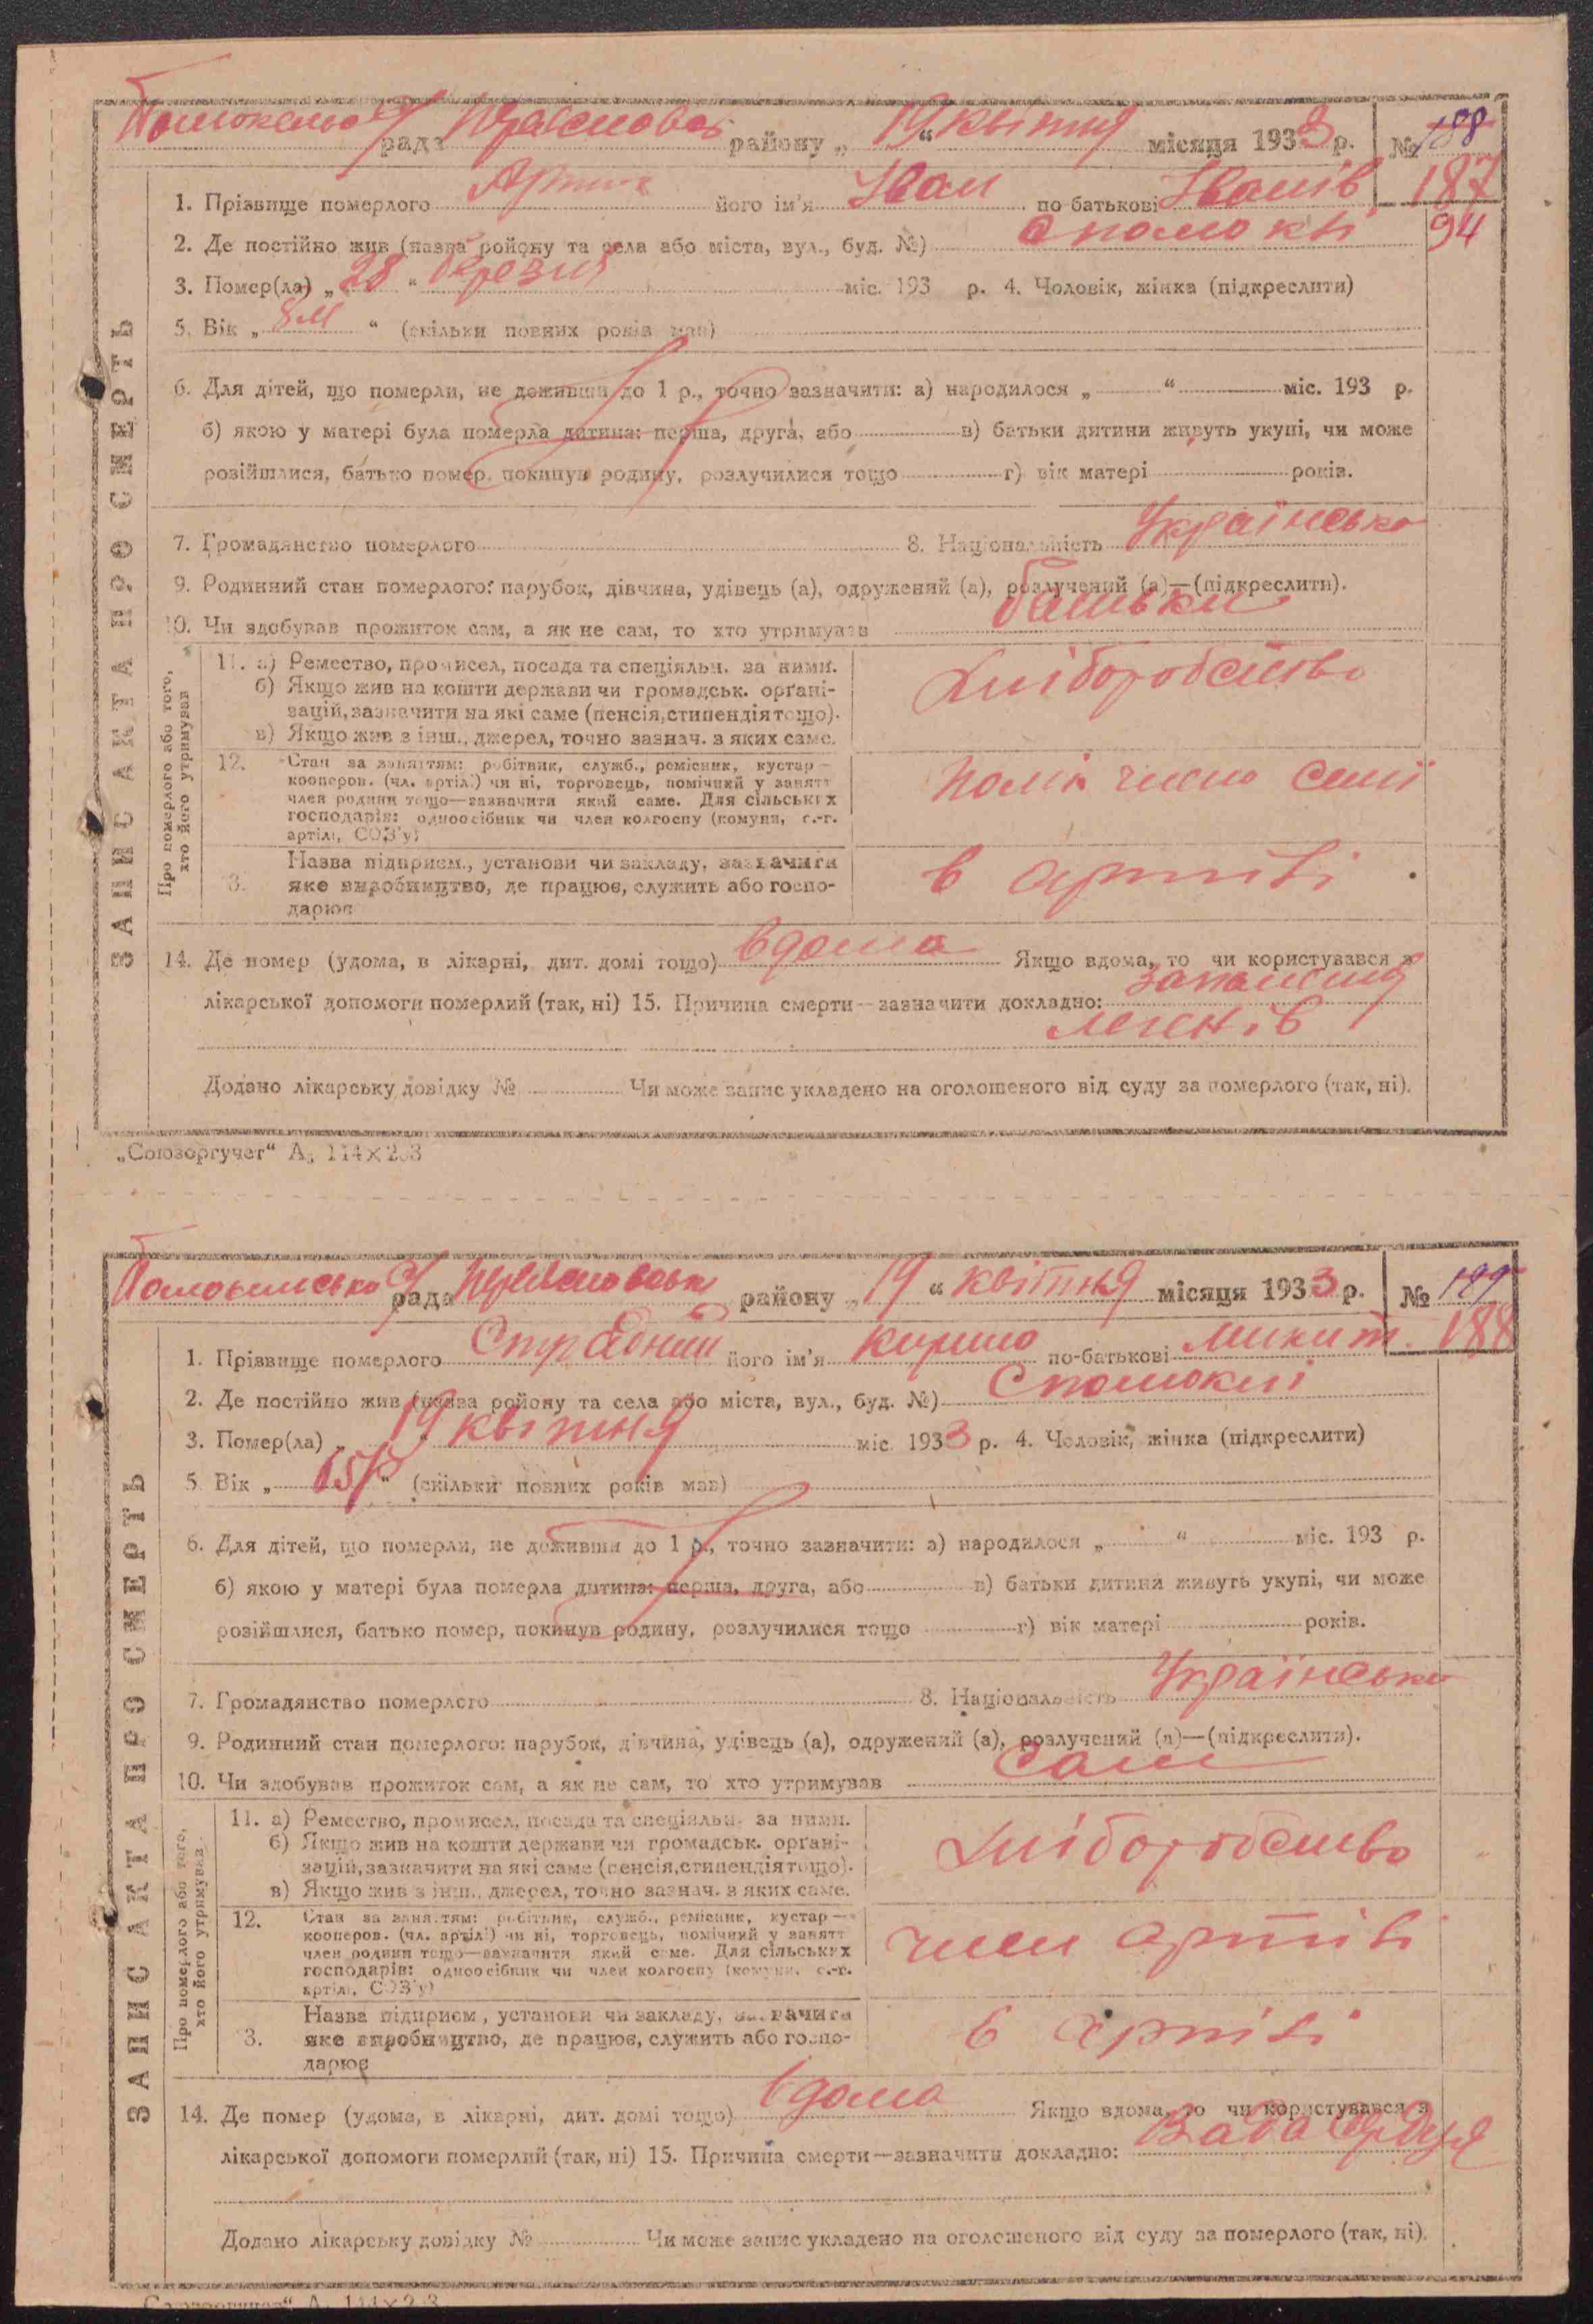 рада района „19“ квітня місяця 1933 р. № 188
187
1. Прізвище померлого його ім'я Іван по батькові Іванів
94
2. Де постійно жив (назва ройону та села або міста, вул., буд. №)
3. Помер(ла) „28“ березня міс. 193 р. 4. Чоловік, жінка (підкреслити)
5. Вік „8 м“ (скільки повних років мав)
6. Для дітей, що померли, не доживши до 1 р., точно зазначити: а) народилося „ “ міс. 193 р.
б) якою у матері була померла дитина: перша, друга, або в) батьки дитини живуть укупі, чи може
розійшлися, батько помер, покинув родину, розлучилися тощо г) вік матері років.
7. Громадянство померлого 8. Національність Українська
9. Родинний стан померлого: парубок, дівчина, удівець (а), одружений (а), розлучений (а)—(підкреслити).
10. Чи здобував прожиток сам, а як не сам, то хто утримував батьки
ЗАПИС АКТА ПРО СМЕРТЬ
Про померлого або того, хто його утримував
11. а) Ремество, промисел, посада та спеціяльн. за ними.
б) Якщо жив на кошти держави чи громадськ. орґані-
зацій, зазначити на які саме (пенсія, стипендія тощо).
в) Якщо жив з інш., джерел, точно зазнач. з яких саме.
Хліборобство
12. Стан за заняттям: робітник, служб., ремісник, кустар—
кооперов. (чл. артіл.) чи ні, торговець, помічний у занятт
член родини тощо—зазначити який саме. Для сільських
господарів: одноосібник чи член колгоспу (комуни, с.-г.
артілі, СОЗ'у)
член сімї
13. Назва підприєм., установи чи закладу, зазначити
яке виробництво, де працює, служить або госпо-
дарює
в артілі
14. Де помер (удома, в лікарні, дит. домі тощо) вдома Якщо вдома, то чи користувався з
лікарської допомоги померлий (так, ні) 15. Причина смерти—зазначити докладно: запалення
легенів
Додано лікарську довідку № Чи може запис укладено на оголошеного від суду за померлого (так, ні).
„Союзоргучет“ А₅ 114×203
рада района „19“ квітня місяця 1933 р. № 199
188
1. Прізвище померлого його ім'я Кирило по-батькові Микит.
2. Де постійно жив (назва ройону та села або міста, вул., буд. №)
3. Помер(ла) „19“ квітня міс. 1933 р. 4. Чоловік, жінка (підкреслити)
5. Вік „65 р“ (скільки повних років мав)
6. Для дітей, що померли, не доживши до 1 р., точно зазначити: а) народилося „ “ міс. 193 р.
б) якою у матері була померла дитина: перша, друга, або в) батьки дитини живуть укупі, чи може
розійшлися, батько помер, покинув родину, розлучилися тощо г) вік матері років.
7. Громадянство померлого 8. Національність Українська
9. Родинний стан померлого: парубок, дівчина, удівець (а), одружений (а), розлучений (а)—(підкреслити).
10. Чи здобував прожиток сам, а як не сам, то хто утримував Сам
ЗАПИС АКТА ПРО СМЕРТЬ
Про померлого або того, хто його утримував
11. а) Ремество, промисел, посада та спеціяльн. за ними.
б) Якщо жив на кошти держави чи громадськ. орґані-
зацій, зазначити на які саме (пенсія, стипендія тощо).
в) Якщо жив з інш., джерел, точно зазнач. з яких саме.
Хліборобство
12. Стан за заняттям: робітник, служб., ремісник, кустар—
кооперов. (чл. артіл.) чи ні, торговець, помічний у занятт
член родини тощо—зазначити який саме. Для сільських
господарів: одноосібник чи член колгоспу (комуни, с.-г.
артілі, СОЗ'у)
член артілі
13. Назва підприєм., установи чи закладу, зазначити
яке виробництво, де працює, служить або госпо-
дарює
в артілі
14. Де помер (удома, в лікарні, дит. домі тощо) вдома Якщо вдома, то чи користувався з
лікарської допомоги померлий (так, ні) 15. Причина смерти—зазначити докладно: Вада серця
Додано лікарську довідку № Чи може запис укладено на оголошеного від суду за померлого (так, ні).